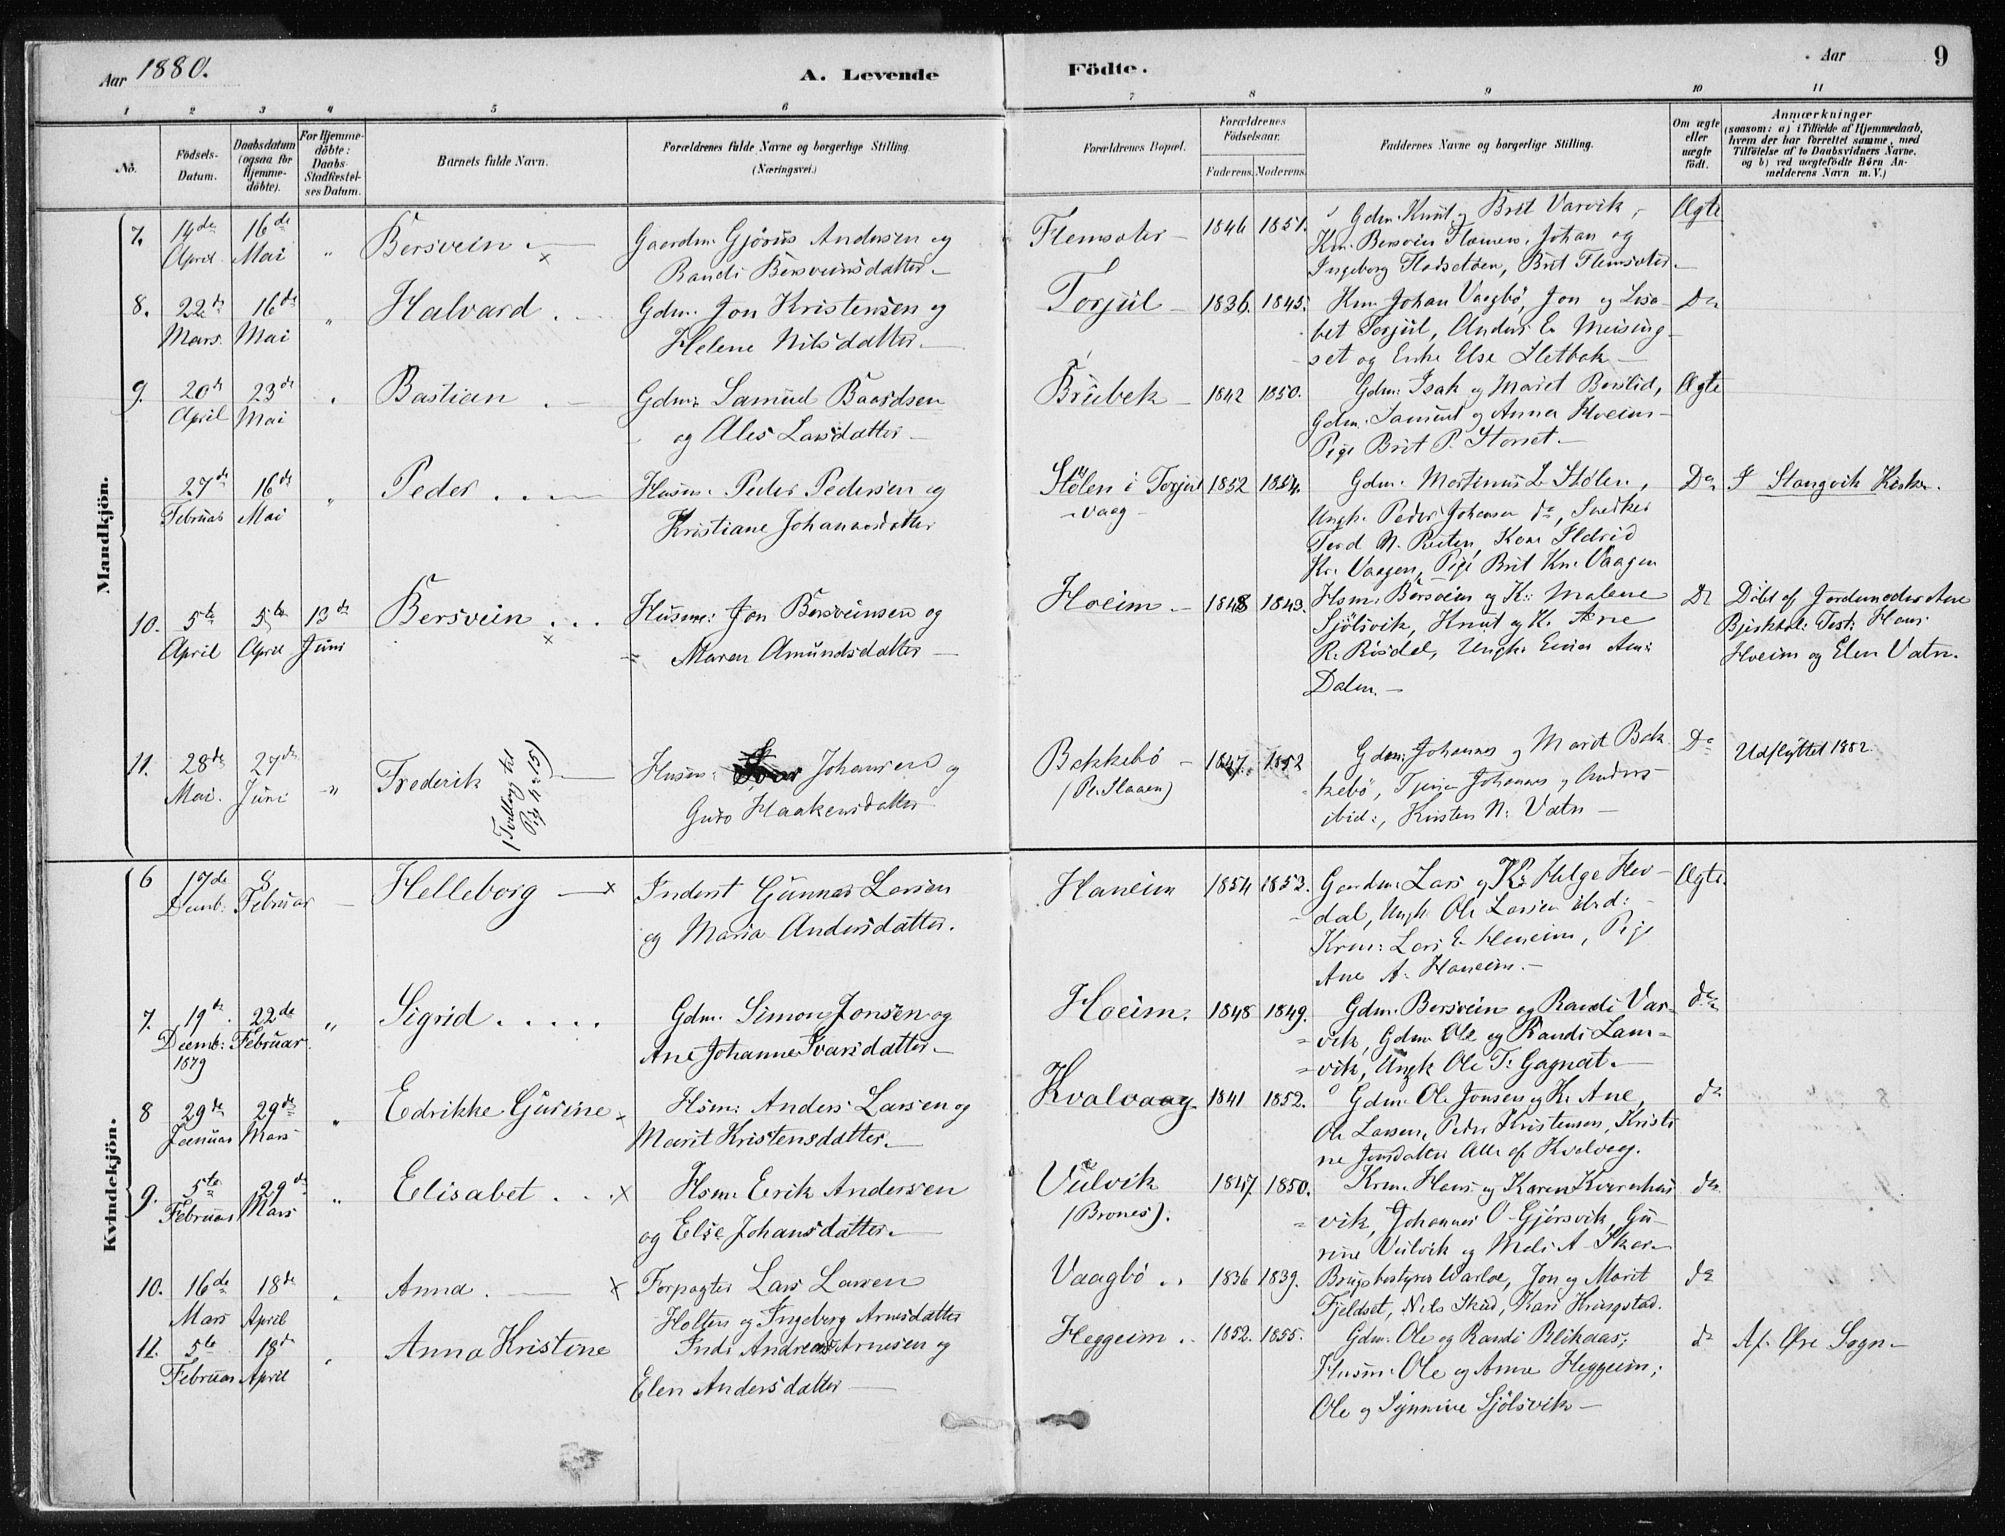 Aar 1880.
A. Levende Födte.
Aar
9
1 2 3 4 5 6 7 8 9 10 11
No.
Födsels-Datum.
Daabsdatum (ogsaa for Hjemme-döbte).
For Hjemme-döbte: Daabs-Stadfæstel-ses Datum.
Barnets fulde Navn.
Forældrenes fulde Navne og borgerlige Stilling (Næringsvei.)
Forældrenes Bopæl.
Forældrenes Födselsaar.
Faderens. Moderens.
Faddernes Navne og borgerlige Stilling.
Om ægte eller uægte födt.
Anmærkninger
(saasom: a) i Tilfælde af Hjemmedaab,
hvem der har forrettet samme, med
Tilföielse af to Daabsvidners Navne.
og b) ved uægtefödte Börn An-
melderens Navn m.V.)
Mandkjön.
7. 14de April 16de Mai " Bersvein
Gaardm. Gjørus Andersen og
Randi Bersveinsdatter
Flemsæter 1846 1851.
Gdm. Knut og Brit Varvik,
Km. Bersvein Flemsæ, Johan og
Ingeborg Fladsetøen, Brit Flemsæter
Ægte
8. 22de Mars 16de Mai " Halvard
Gdm. Jon Kristensen og
Helene Nilsdatter
Torjül 1836. 1845.
Km. Johan Vaagbø, Jon og Lisa-
bet Torjül, Anders E. Meising-
set og Enke Else Sletbak
Do
9. 20de April 23de Mai " Bastian
Gdm. Samuel Baardsen
og Ales Larsdatter
Brübek 1842 1850.
Gdm. Isak og Marit Børslid,
Gdm. Samuel og Anna Hoeim
Pige Brit P. Storset
Ægte
27de Februar 16de Mai " Peder
Husm. Peder Pedersen og
Kristiane Johannesdatter
Stölen i Torjul
vaag 1852 1854.
Gdm. Martinus L. Stölen,
Ungk. Peder Johansen do, Snedker
Tord N. Røiten, Kone Ildrid
Kr. Vaagen, Pige Brit Kn. Vaagen
Do I Stangvik Kirke.
10. 5te April 5te April 13de Juni Bersvein
Husm: Jon Bersveinsen og
Maren Amundsdatter
Hoeim 1848 1843.
Hsm: Bersvein og K: Malene
Sjölsvik, Knut og K. Ane
R. Røsdal, Ungk. Einar Am:
Dalen.
Do Döbt af Jordemoder Ane
Bjerkhol: Test: Hans
Hoeim og Elen Vatn.
11. 28de Mai. 27de Juni " Frederik
(Tvillinge til
Pige No 15)
Husm: Johansen og
Guro Haakensdatter
Bakkebö
(Pl. Slaaen) 1847. 1852
Gdm: Johannes og Marit Bak
kebø, Tjener Johannes og Anders
ibid:, Kirsten N: Vatn
Do Udflyttet 1882.
Kvindekjön.
6 17de Decmb. 8 Februar Helleborg
Inderst Gunnar Larsen
og Maria Andersdatter.
Haneim 1854 1853.
Gaardm: Lars og K: Helge Hev-
dal, Ungk. Ole Larsen ibid:
Krm: Lars E. Haneim, Pige
Ane A. Haneim.
Ægte.
7. 19de Decemb: 1879 22de Februar " Sigrid
Gdm. Simon Jonsen og
Ane Johanne Ivarsdatter
Hoeim. 1848 1849.
Gdm. Bersvein og Randi Var-
vik, Gdm. Ole og Randi Lam-
vik, Ungk Ole T: Gagnat.
do
8 29de Januar 29de Mars " Edrikke Gurine
Hsm: Anders Larsen og
Marit Kristensdatter
Kvalvaag 1841 1852.
Gdm. Ole Jonsen og K. Ane,
Ole Larsen, Peder Kristensen, Kristi
ne Jonsdatter Alle af Kvalvaag.
do
9. 5te Februar 29de Mars " Elisabet
Hsm. Erik Andersen
og Else Johansdatter
Vülvik
(Brones). 1847 1850.
Krm. Hans og Karen Kvernhus
vik, Johannes O. Gjörsvik, Gu-
rine Vülvik og Mali A. Skar
do
10. 16de Mars 18de April Anna
Forpagter Lars Larsen
Holten og Ingeborg Arnesdatter
Vaagbö 1836 1839.
Brugsbestyrer Warloe, Jon og Marit
Fjeldset, Nils Sküd, Kari Kringstad.
do
11. 5te Februar 18de April Anna Kristine
Indr Andreas Arnesen og
Elen Andersdatter
Heggeim 1852. 1855.
Gdm. Ole og Randi Blikaas,
Husm. Ole og Anne Heggeim,
Ole og Synnive Sjölsvik
do Af Øre Sogn